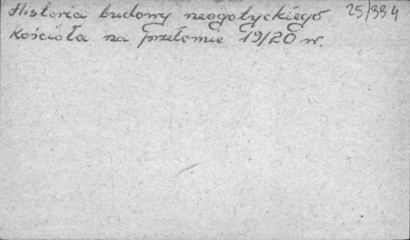 Historia budowy neogotyckiego 25/334
Kościoła na przełomie 19/20 w.